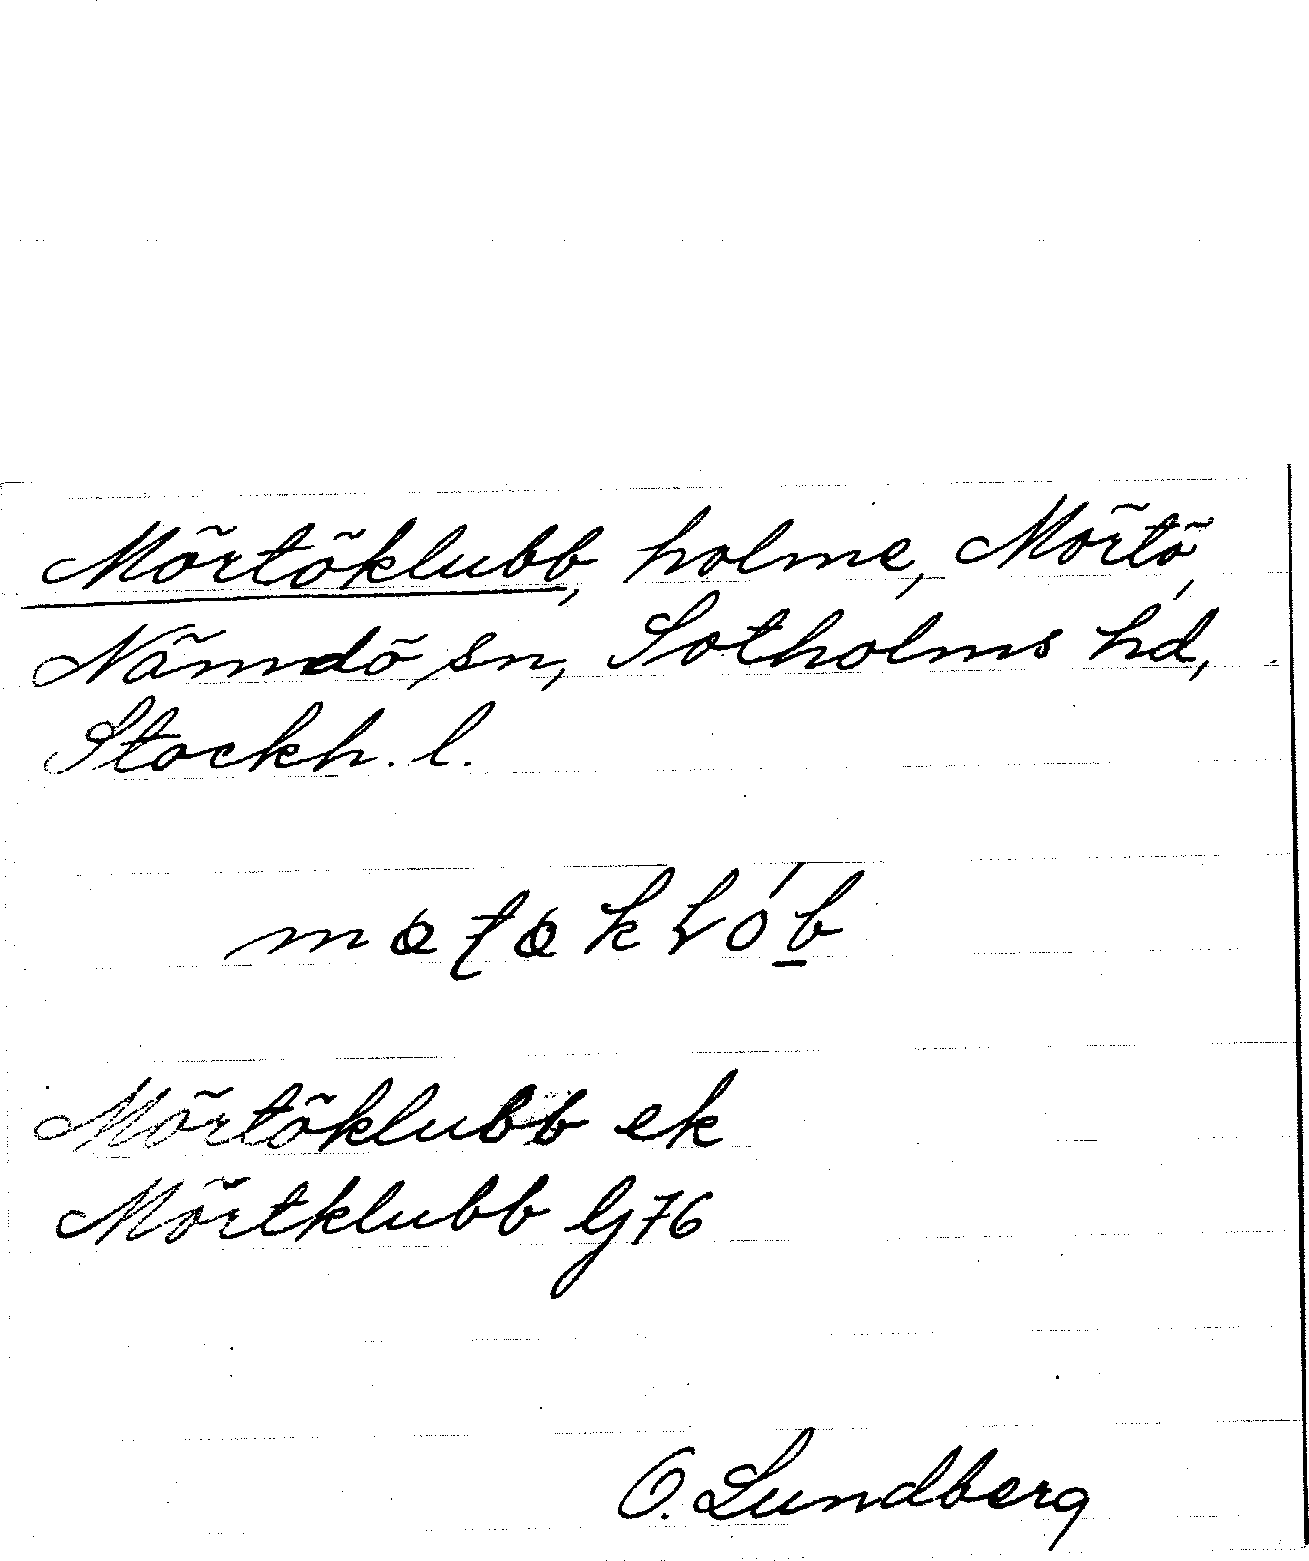 Mörtöklubb, holme, Mörtö,
Nämdö sn, Sotholms hd,
Stockh. l.
Mörtöklubb ek
Mörtklubb lj 76
O. Lundberg